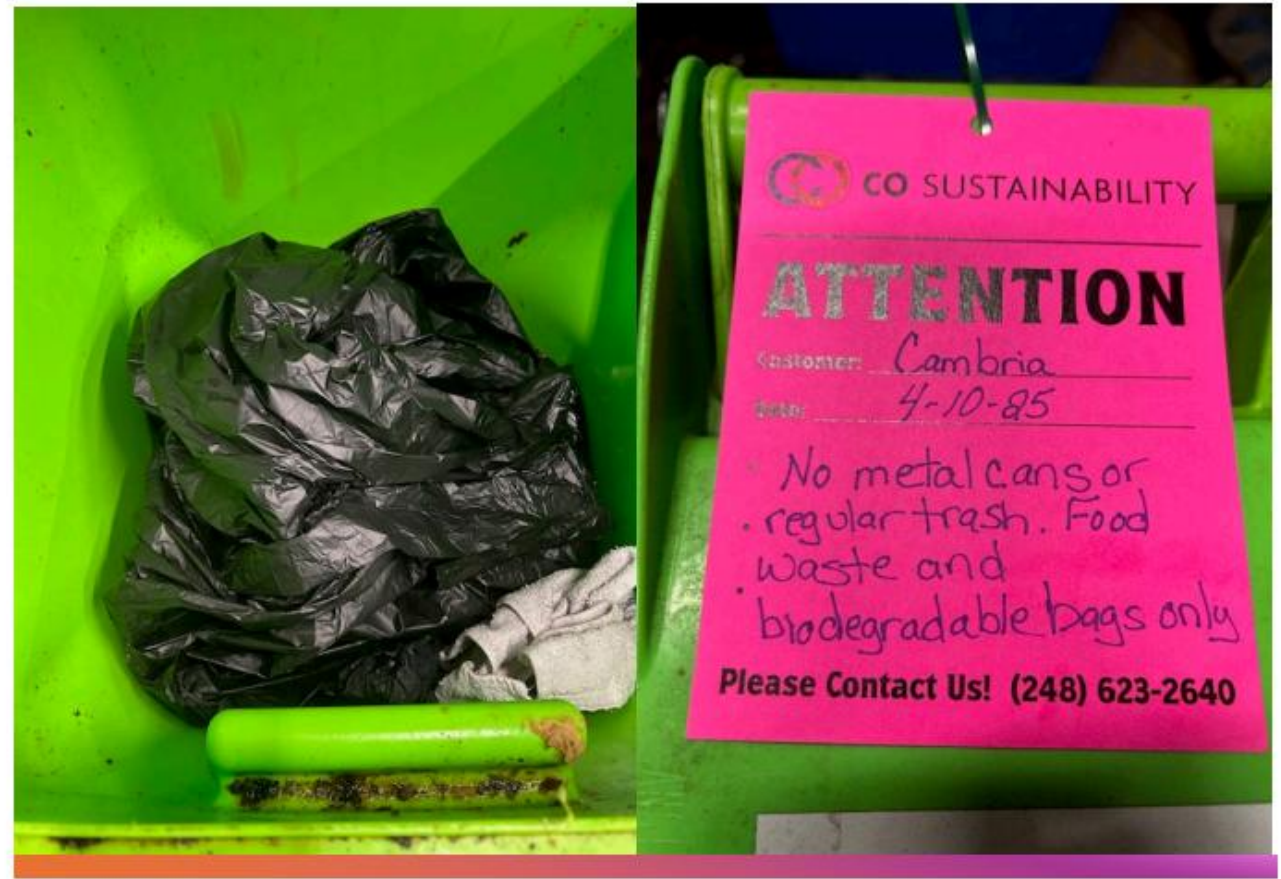 CO SUSTAINABILITY
ATTENTION
Customer: Cambria
Date: 4-10-25
No metal cans or
regular trash. Food
waste and
biodegradable bags only
Please Contact Us! (248) 623-2640